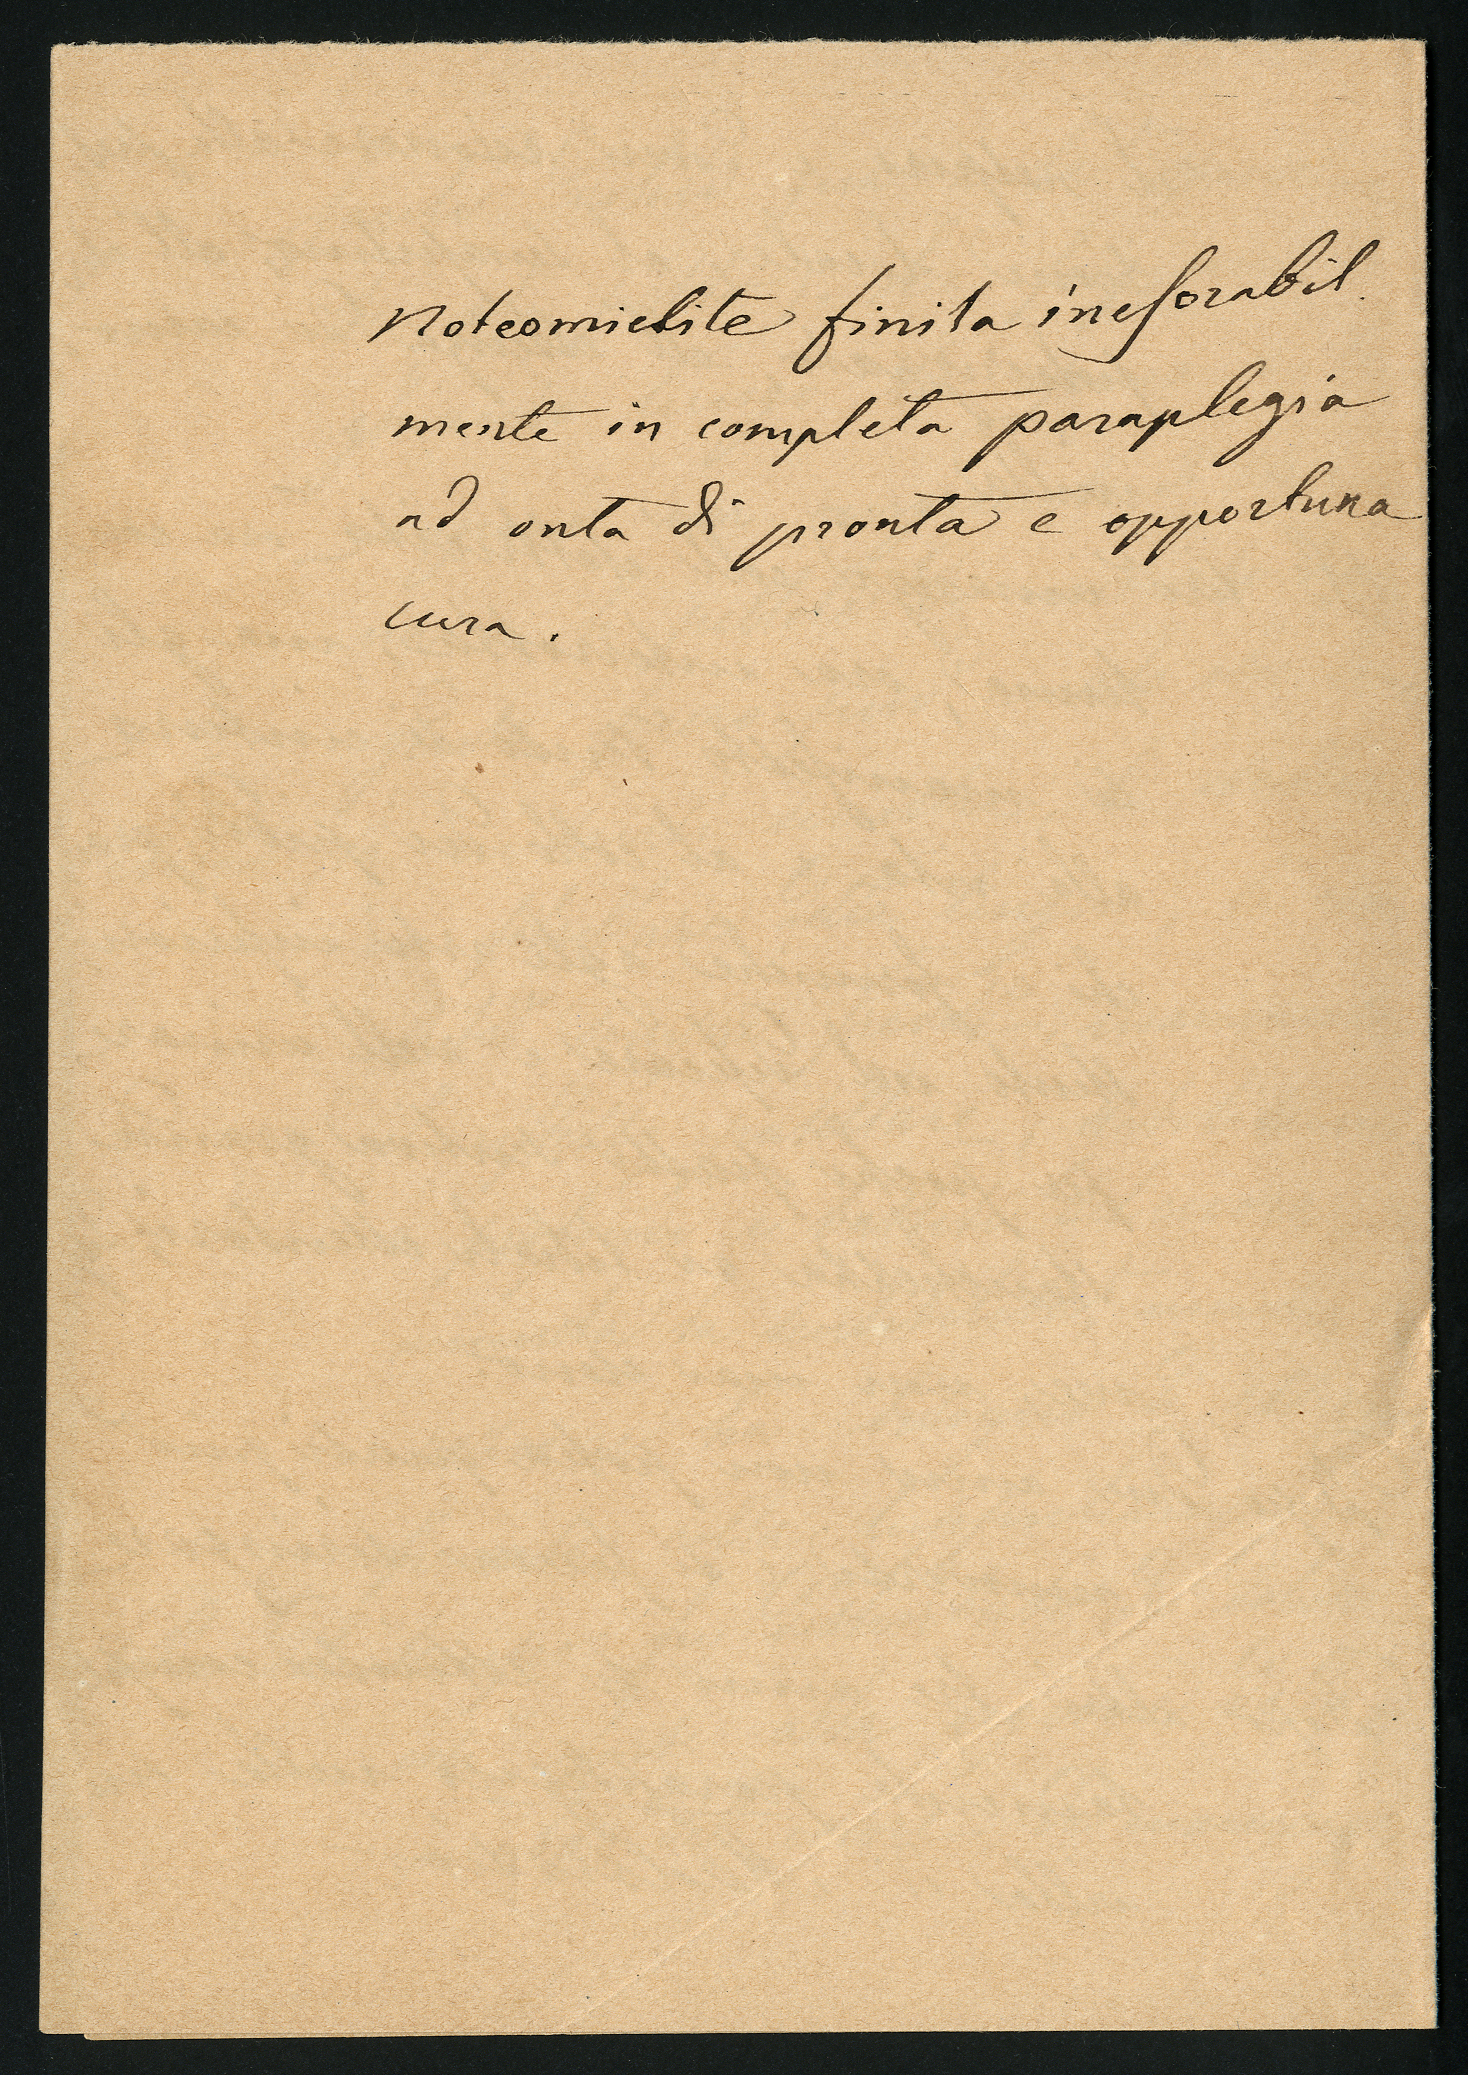 Noteomielite finita inesorabil
mente in completa paraplegia
ad onta di pronta e opportuna
cura.